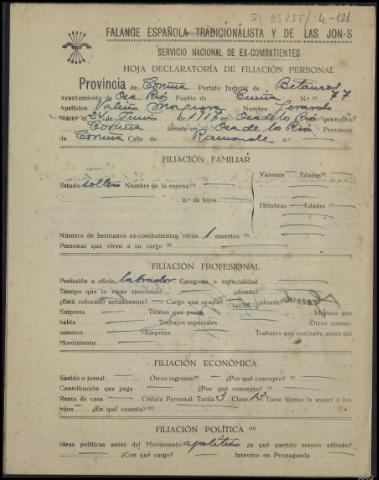 FALANGE ESPAÑOLA TRADICIONALISTA Y DE LAS JON-S
SERVICIO NACIONAL DE EX-COMBATIENTES
HOJA DECLARATORIA DE FILIACIÓN PERSONAL
Provincia de Coruña Partido Judicial de Betanzos
Ayuntamiento de Pueblo de N.º 77
Apellidos Nombre Gerardo
Nació el 24 de de provincia
Coruña Reside en Provincia
de Coruña Calle de n.º
FILIACIÓN FAMILIAR
Varones Edades
Estado soltero Nombre de la esposa
n.º de hijos
Hembras Edades
Número de hermanos ex-combatientes, vivos 1 muertos
Personas que viven a su cargo
FILIACIÓN PROFESIONAL
Profesión u oficio labrador Categoría o especialidad
Tiempo que lo viene ejerciendo ¿donde?
¿Está colocado actualmente? Cargo que ocupa ¿donde?
Empresa Títulos que posee Idiomas que
habla Trabajos especiales Otros conoci-
mientos Empresa Trabajos que realizaba antes del
Movimiento
FILIACIÓN ECONÓMICA
Sueldo o jornal Otros ingresos ¿Por qué concepto?
Contribución que paga ¿Por qué concepto?
Renta de casa Cédula Personal: Tarifa 3 Clase 13 Tiene bienes la mujer o los
hijos ¿En qué cuantía?
FILIACIÓN POLÍTICA
Ideas políticas antes del Movimiento apolítico ¿a qué partido estuvo afiliado?
¿Con qué cargo? Intervino en Propaganda